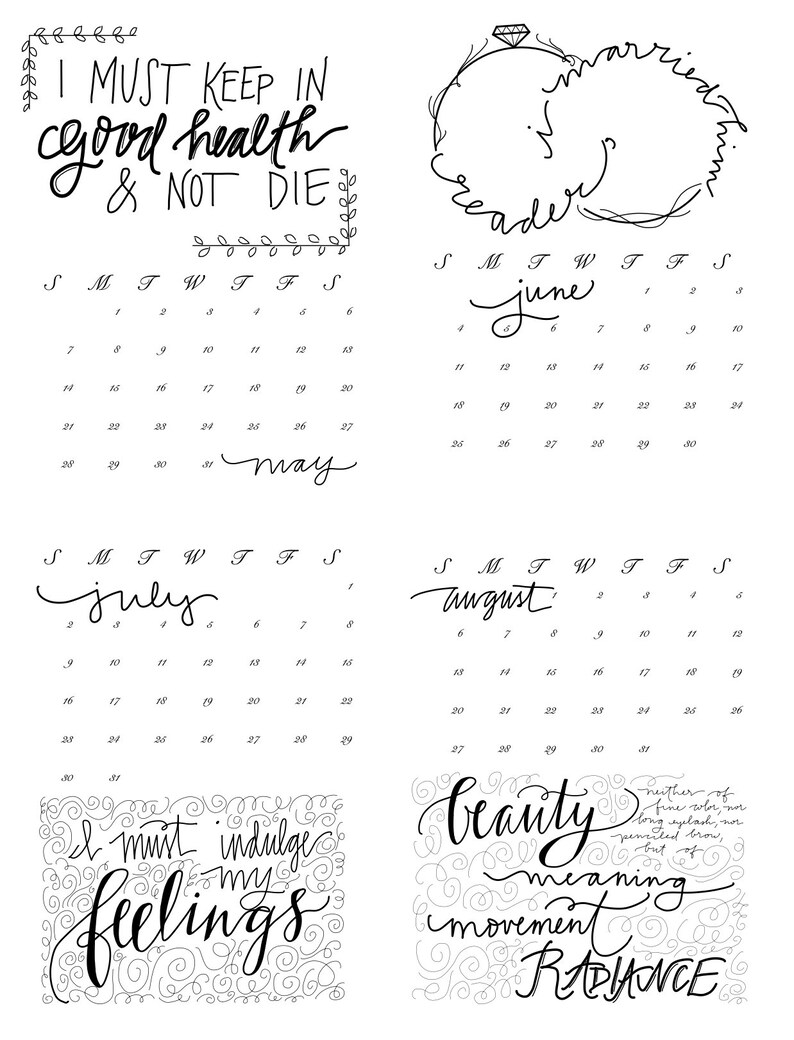 I MUST KEEP IN
good health
& NOT DIE
S M T W T F S
1 2 3 4 5 6
7 8 9 10 11 12 13
14 15 16 17 18 19 20
21 22 23 24 25 26 27
28 29 30 31 may
reader, i married him
S M T W T F S
june 1 2 3
4 5 6 7 8 9 10
11 12 13 14 15 16 17
18 19 20 21 22 23 24
25 26 27 28 29 30
S M T W T F S
july 1
2 3 4 5 6 7 8
9 10 11 12 13 14 15
16 17 18 19 20 21 22
23 24 25 26 27 28 29
30 31
I must indulge
my
feelings
S M T W T F S
august 1 2 3 4 5
6 7 8 9 10 11 12
13 14 15 16 17 18 19
20 21 22 23 24 25 26
27 28 29 30 31
beauty
neither of
fine color, nor
long eyelash, nor
penciled brow,
but of
meaning
movement
RADIANCE